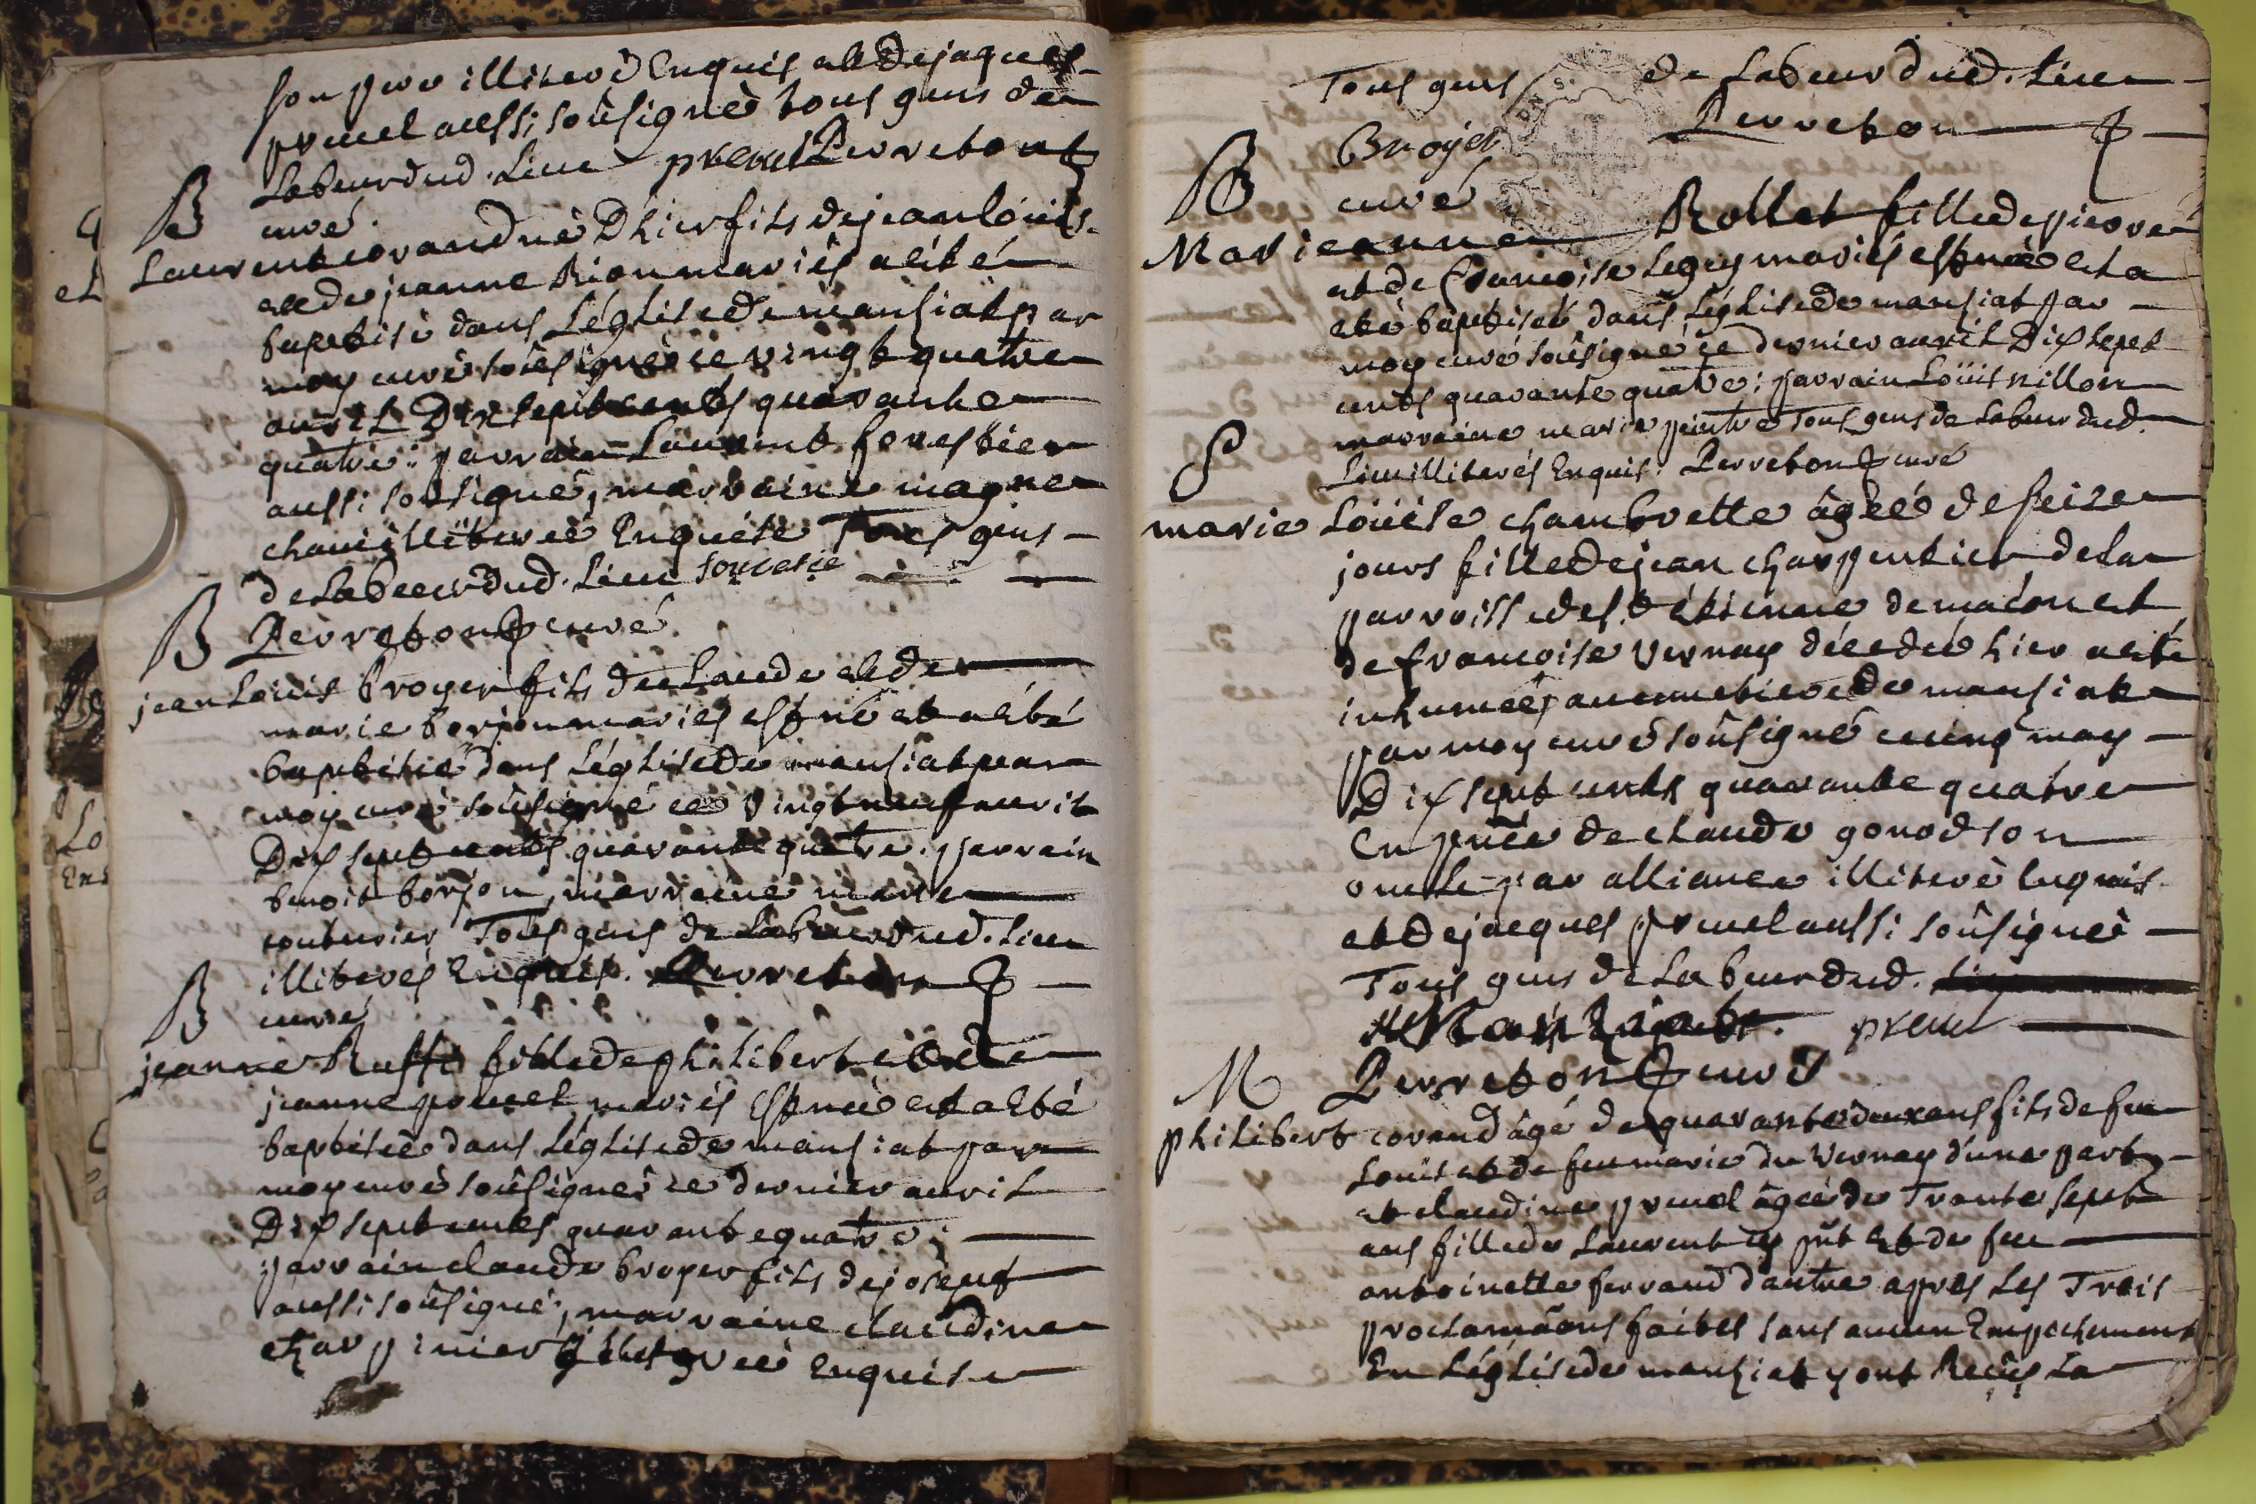 son pere illiteré Enquis et de jaques
pruel aussi soûsigné tous gens de
Labeur dud. Lieu pruel Perreton
B
curé.
Laurent corand né D'hier fils de jean loüis
et de jeanne Rion mariés a été
baptisé dans L'église de mansiat par
moy curé soûsigné ce vingt quatre
avril Dix sept cents quarante
quatre: parrain Laurent forestier
aussi soûsigné, marraine magne
illiterée Enquise Tous gens
de Labeur dud. Lieu forestie
B
Perreton curé.
jean Loüis broyer fils de Claude et de
marie borjon mariés est né et a été
baptisé dans L'église de mansiat par
moy curé soûsigné ce vingt neuf avril
Dix sept cents quarante quatre. parrain
benoit borjon, marraine marie
couturier Tous gens de Labeur dud. Lieu
illiterés Enquis. Perreton
B
curé
jeanne Ruffi fille de philibert et de
jeanne pouset mariés est née et a été
baptisée dans L'église de mansiat par
moy curé soûsigné ce dernier avril
Dix sept cents quarante quatre;
parrain claude broyer fils de joseph
aussi soûsigné, marraine claudine
charpinier illiterée Enquise
Tous gens de Labeur dud. Lieu
Broyer Perreton
B
curé
Marie jeanne Rollet fille de pierre
et de Francoise Legey mariés est née et a
eté baptisée dans L'église de mansiat par
moy curé soûsigné ce dernier avril Dix sept
cents quarante quatre: parrain Loüis nillon
marraine marie peintre Tous gens de Labeur dud.
S
Lieu illiterés Enquis: Perreton curé
marie Loüise chambrette âgée de seize
jours fille de jean charpentier de la
parroisse de St Etienne de macon et
de francoise Vernay décedée hier a été
inhumée au cimetiere de mansiat
par moy curé soûsigné ce cinq may
Dix sept cents quarante quatre
en pñce de claude gonod son
oncle par alliance illiteré Enquis
et de jacques pruel aussi soûsigné
Tous gens de Labeur dud.
pruel
M
Perreton curé
philibert corand âgé de quarante deux ans fils de feu
Loüis et de feu marie du Vernay d'une part
et claudine pruel âgée de Trante sept
ans fille de Laurent cy pñt Et de feu
antoinette ferrand d'autre apres Les Trois
proclamãons faites sans aucun Empechement
En L'église de mansiat y ont Reçûs La